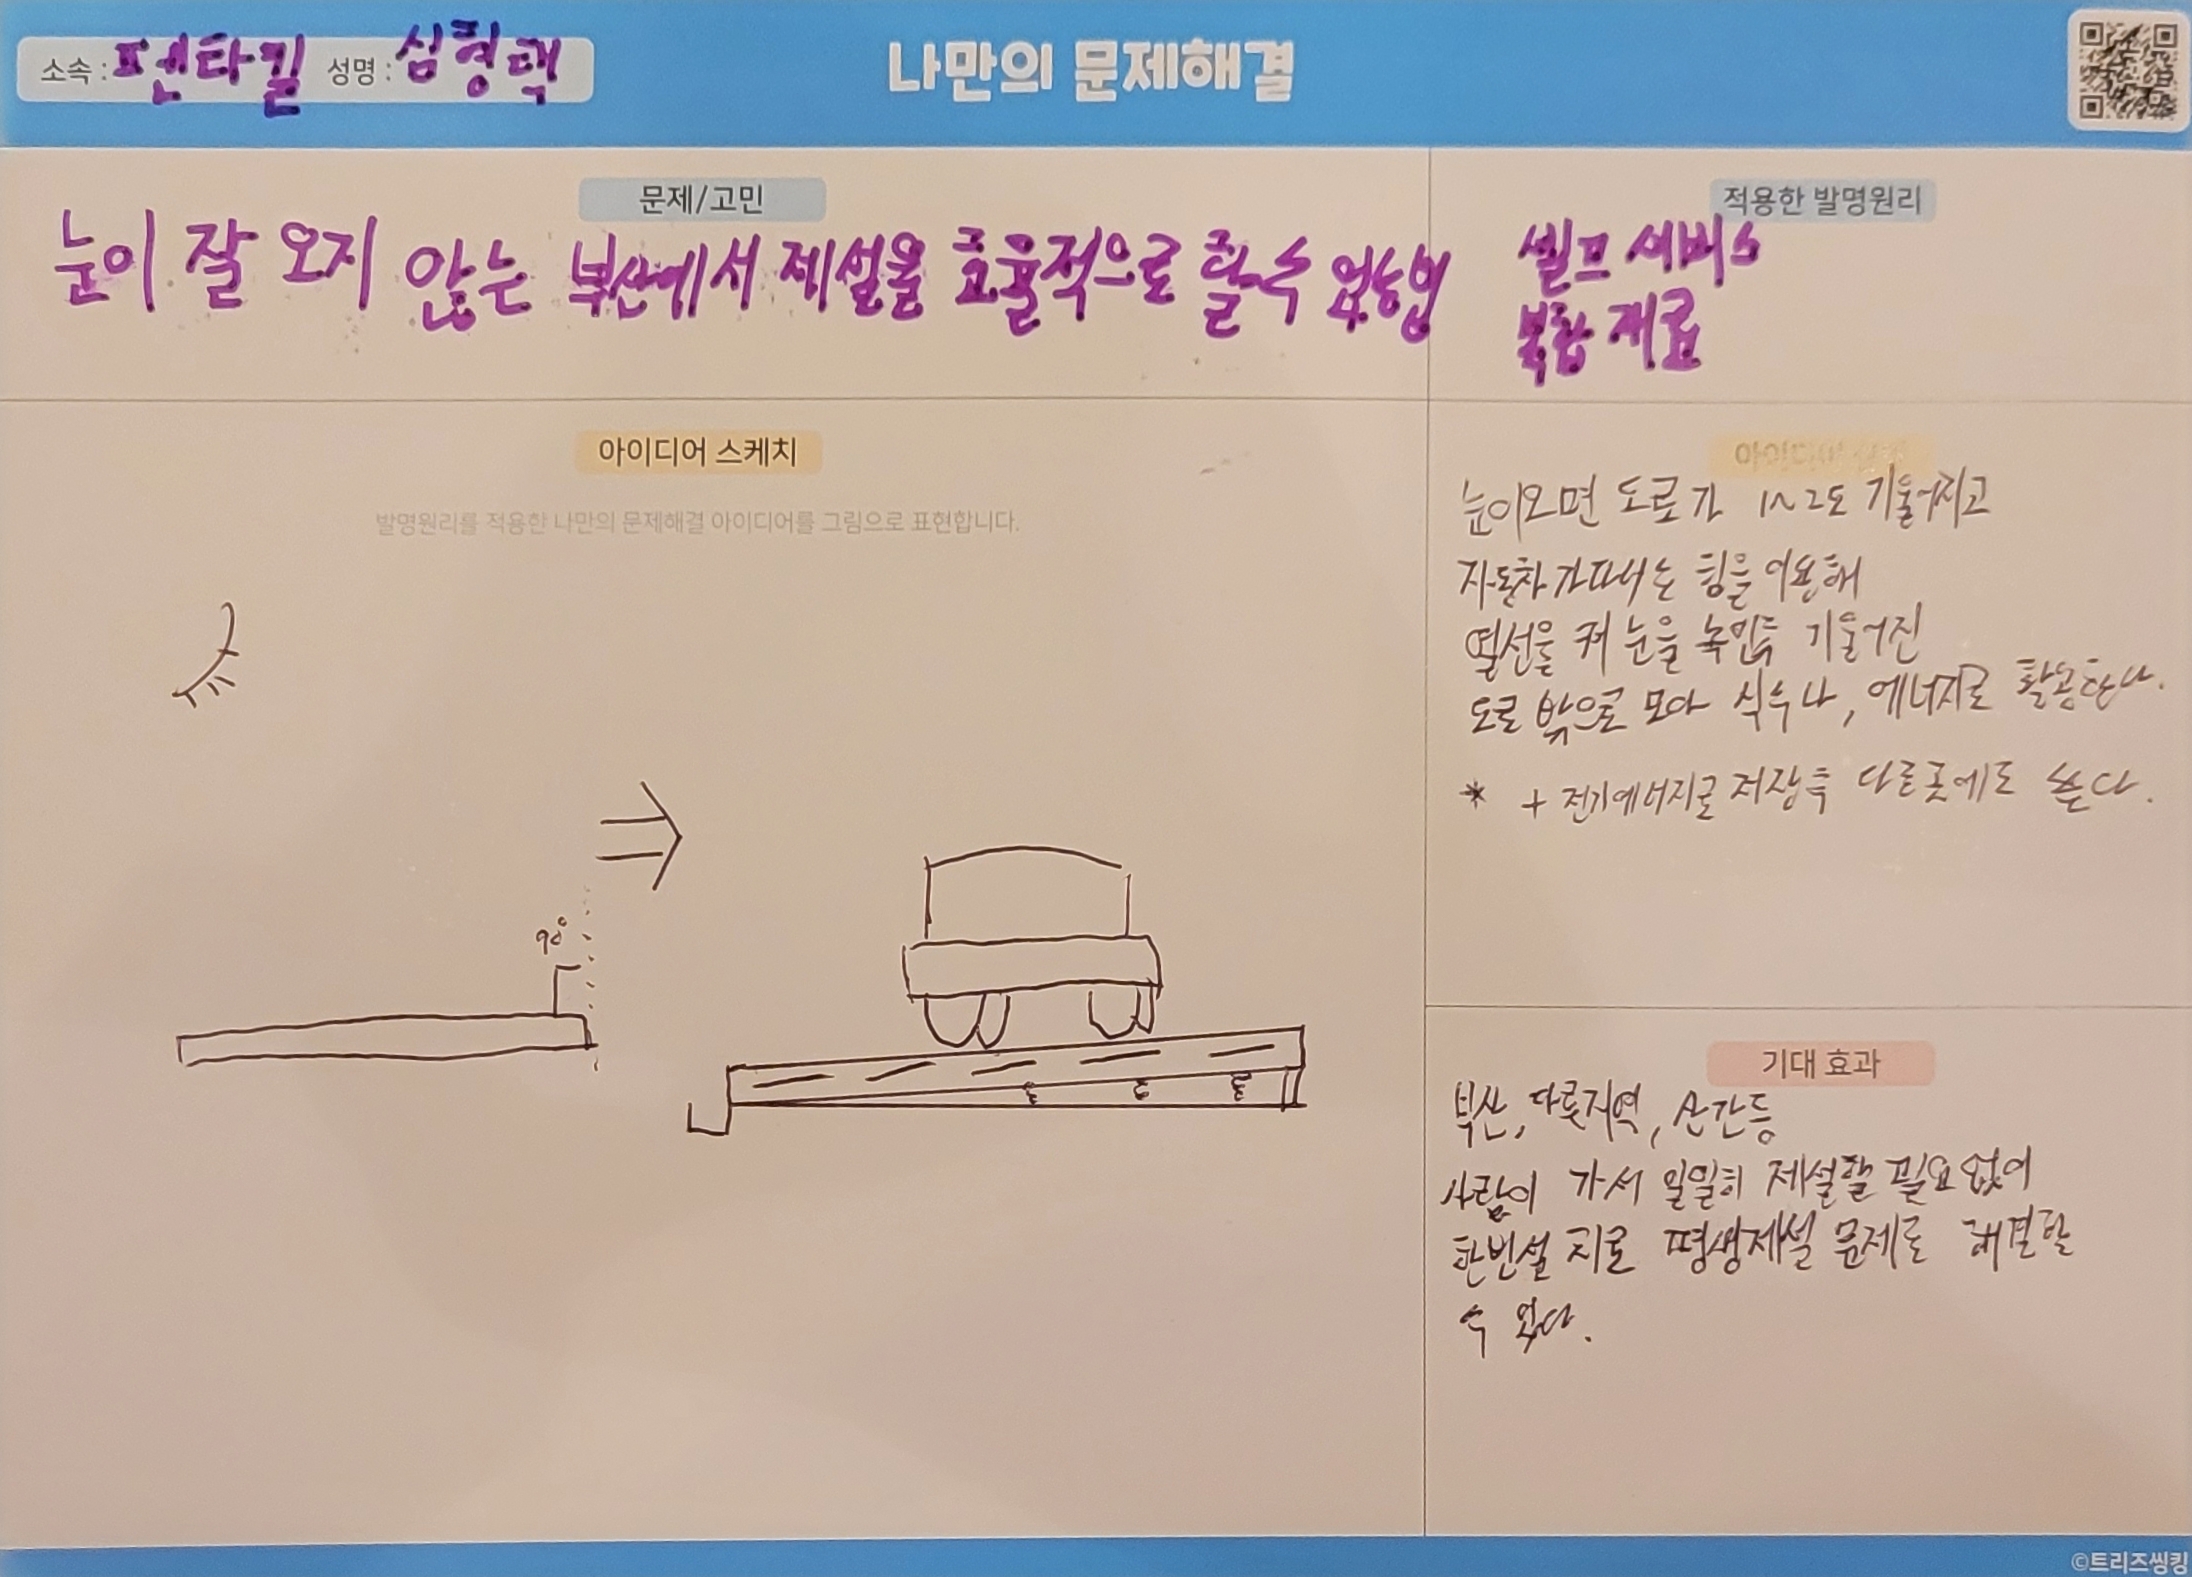 소속 : 펜타킬 성명 : 심형택
나만의 문제해결
문제/고민
눈이 잘 오지 않는 부산에서 제설을 효율적으로 할수 있는법
적용한 발명원리
셀프 서비스
복합 재료
아이디어 스케치
발명원리를 적용한 나만의 문제해결 아이디어를 그림으로 표현합니다.
90°
아이디어
눈이오면 도로가 1~2도 기울어지고
자동차가 따서는 힘을 이용해
열선을 켜 눈을 녹인후 기울어진
도로 밖으로 모아 식수나, 에너지로 활용한다.
* + 전기에너지로 저장후 다른곳에도 쓴다.
기대 효과
부산, 다른지역, 산간등
사람이 가서 일일히 제설할 필요없이
한번설치로 평생제설 문제를 해결할
수 있다.
©트리즈씽킹